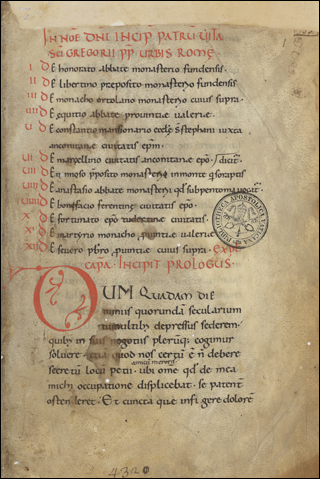 IN NOE DNI INCIP PATRU UITA
SCI GREGORII PP URBIS ROME
I DE honorato abbate monasterio fundensis.
II DE libertino preposito monasterio fundensis
III DE monacho ortolano monasterio cuius supra.
IIII DE equitio abbate prouintie ualerie.
U DE constantio mansionario eccle S Stephani iuxta
anconitane ciuitatis epm.
UI DE marcellino ciuitatis anconitane epo
UII DE nonoso pposito monasterii in monte
UIII DE anastasio abbate monasterii qd subpentoma uocit
UIIII DE bonifacio ferentine ciuitatis epo.
X DE fortunato epo tudertine ciuitatis.
XI DE martyrio monacho puintie ualerie
XII DE seuero pbro puintie cuius supra.
CAPA. INCIPIT PROLOGUS.
QUM QUADAM DIE
nimiis quorunda secularium
tumultib depressus sederem.
quib in suis negotiis pleruq cogimur
soluere. etia quod nos certu e n debere
amicu meroris
secretu locu petii. ubi ome qd de mea
michi occupatione displicebat. se patent
ostenderet. Et cuncta que infligere dolore
BIBLIOTHECA APOSTOLICA VATICANA
4320